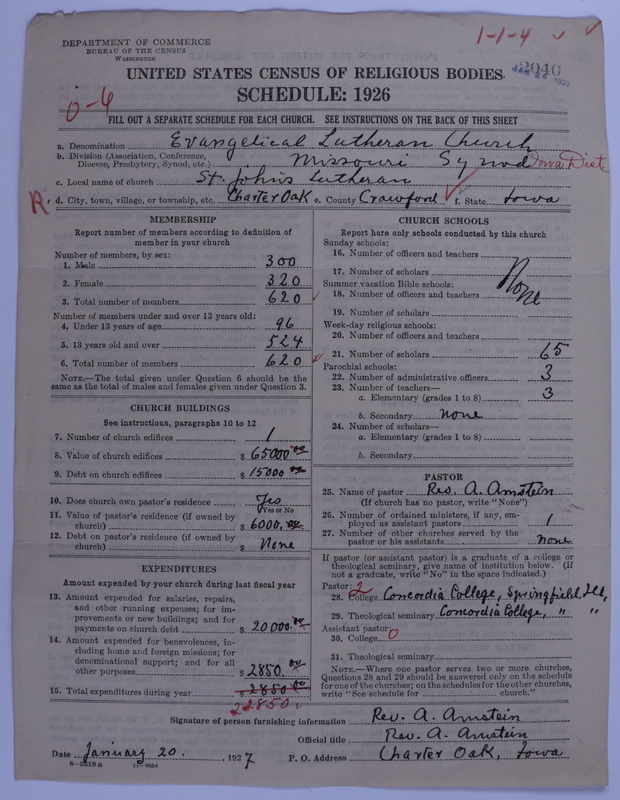 DEPARTMENT OF COMMERCE
BUREAU OF THE CENSUS
WASHINGTON
1-1-4
2040
UNITED STATES CENSUS OF RELIGIOUS BODIES
SCHEDULE: 1926
0-6
FILL OUT A SEPARATE SCHEDULE FOR EACH CHURCH. SEE INSTRUCTIONS ON THE BACK OF THIS SHEET
a. Denomination Evangelical Lutheran Church
b. Division (Association, Conference,
Diocese, Presbytery, Synod, etc.) Missouri Synod Iowa Dist
c. Local name of church St. Johns Lutheran
R d. City, town, village, or township, etc. Charter Oak e. County Crawford f. State Iowa
MEMBERSHIP
Report number of members according to definition of
member in your church
Number of members, by sex:
1. Male 300
2. Female 320
3. Total number of members 620
Number of members under and over 13 years old:
4. Under 13 years of age 96
5. 13 years old and over 524
6. Total number of members 620
NOTE.—The total given under Question 6 should be the
same as the total of males and females given under Question 3.
CHURCH BUILDINGS
See instructions, paragraphs 10 to 12
7. Number of church edifices 1
8. Value of church edifices $ 65000 00
9. Debt on church edifices $ 15000 00
10. Does church own pastor's residence Yes
Yes or No
11. Value of pastor's residence (if owned by
church) $ 6000, 00
12. Debt on pastor's residence (if owned by
church) $ None
EXPENDITURES
Amount expended by your church during last fiscal year
13. Amount expended for salaries, repairs,
and other running expenses; for im-
provements or new buildings; and for
payments on church debt $ 20000. 00
14. Amount expended for benevolences, in-
cluding home and foreign missions; for
denominational support; and for all
other purposes $ 2850. 00
15. Total expenditures during year $ 2850 00
22850.
CHURCH SCHOOLS
Report here only schools conducted by this church
Sunday schools:
16. Number of officers and teachers
17. Number of scholars
Summer vacation Bible schools:
18. Number of officers and teachers
None
19. Number of scholars
Week-day religious schools:
20. Number of officers and teachers
21. Number of scholars 65
Parochial schools:
22. Number of administrative officers 3
23. Number of teachers—
a. Elementary (grades 1 to 8) 3
b. Secondary None
24. Number of scholars—
a. Elementary (grades 1 to 8)
b. Secondary
PASTOR
25. Name of pastor Rev. A. Amstein
(If church has no pastor, write "None")
26. Number of ordained ministers, if any, em-
ployed as assistant pastors 1
27. Number of other churches served by the
pastor or his assistants None
If pastor (or assistant pastor) is a graduate of a college or
theological seminary, give name of institution below. (If
not a graduate, write "No" in the space indicated.)
Pastor: 2
28. College Concordia College, Springfield, Ill,
29. Theological seminary Concordia College, " "
Assistant pastor:
30. College 0
31. Theological seminary
NOTE.—Where one pastor serves two or more churches,
Questions 28 and 29 should be answered only on the schedule
for one of the churches; on the schedules for the other churches,
write "See schedule for church."
Signature of person furnishing information Rev. A. Amstein
Official title Rev. A. Amstein
Date January 20, 1927 P. O. Address Charter Oak, Iowa
8-5518 a 11-9664